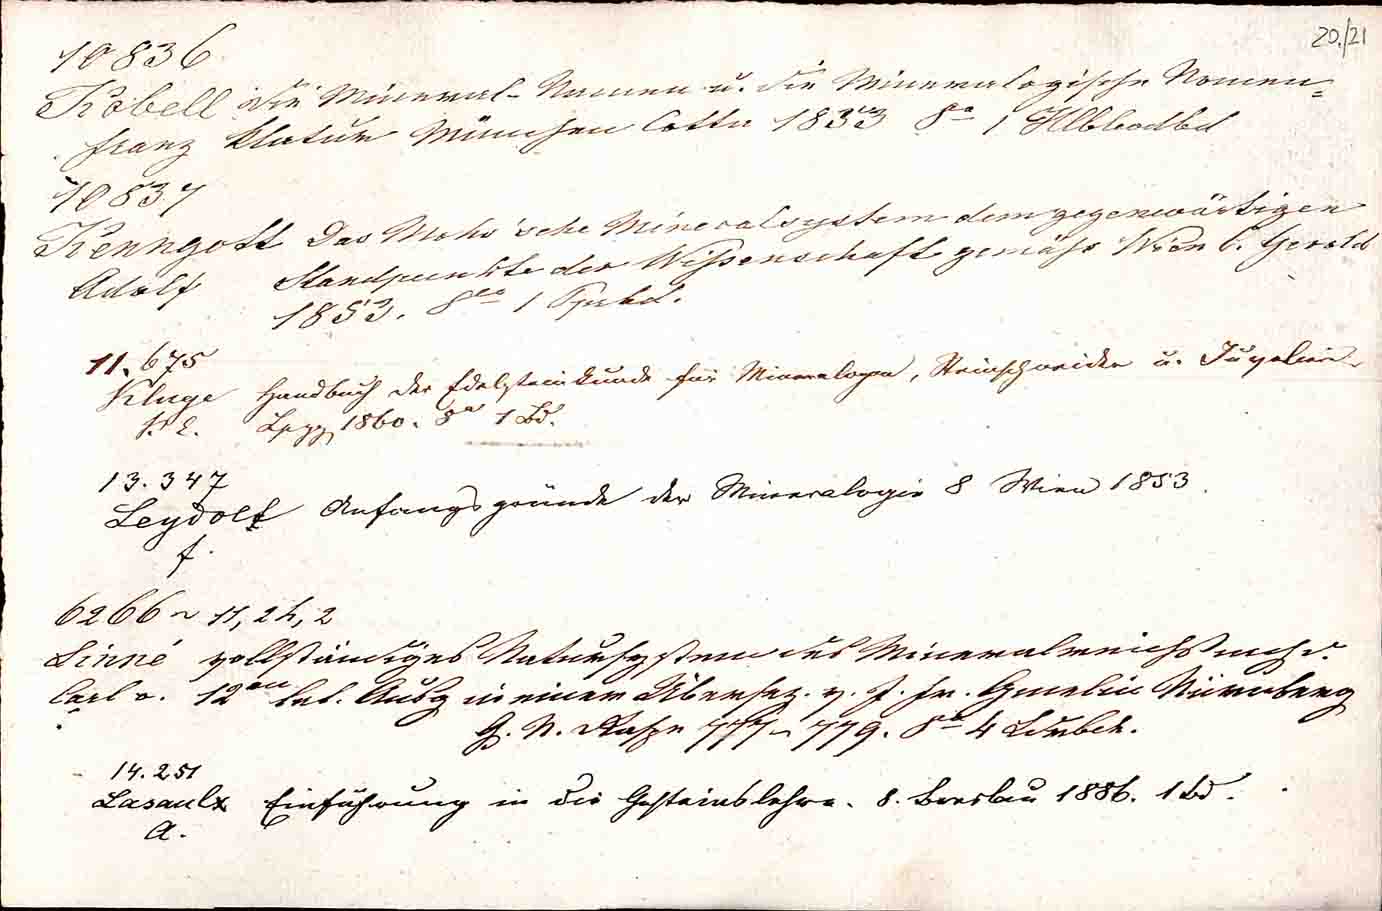 20./21
10836
Kobell Die Mineral-Namen u. die Mineralogische Nomen=
Franz klatur München Cotta 1853 8vo 1 Hlblodbd
10837
Kenngott Das Mohs'sche Mineralsystem dem gegenwärtigen
Adolf Standpunkte der Wissenschaft gemäß Wien C. Gerold
1853. 8vo 1 Ppbd.
11.675
Kluge Handbuch der Edelsteinkunde für Mineralogen, Steinschneider u. Juweliere
K. E. Lpzg 1860. 8o 1 Bd.
13.347
Leydolt Anfangsgründe der Mineralogie 8 Wien 1853.
f.
6266~ 11, 2h, 2
Linné vollständiges Natursystem des Mineralreichs nach d.
Carl v. 12ten lat. Ausg in einer Übersez. v. J. Fr. Gmelin Nürnberg
G. N. Raspe 777~779. 8o 4 Ldrbde.
14.251
Lasaulx Einführung in die Gesteinslehre. 8. Breslau 1886. 1 Bd.
A.